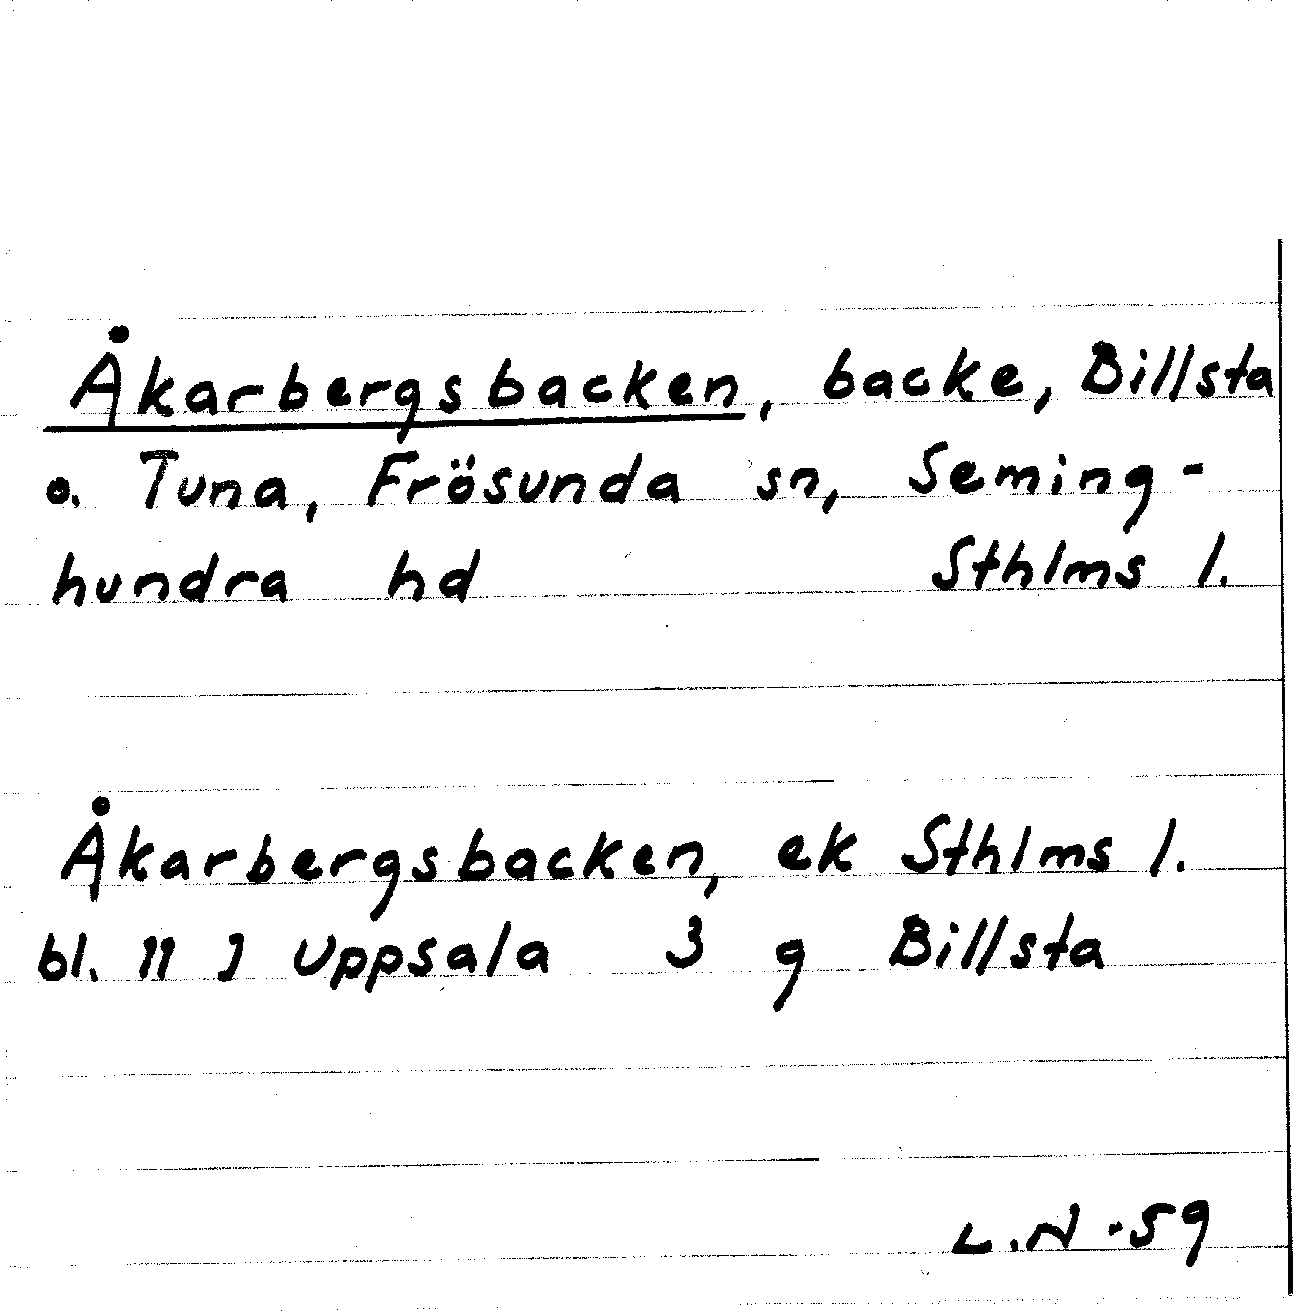 Åkarbergsbacken, backe, Billsta
o. Tuna, Frösunda sn, Seming-
hundra hd Sthlms l.
Åkarbergsbacken, ek Sthlms l.
bl. 11 J Uppsala 3 g Billsta
L.N -59